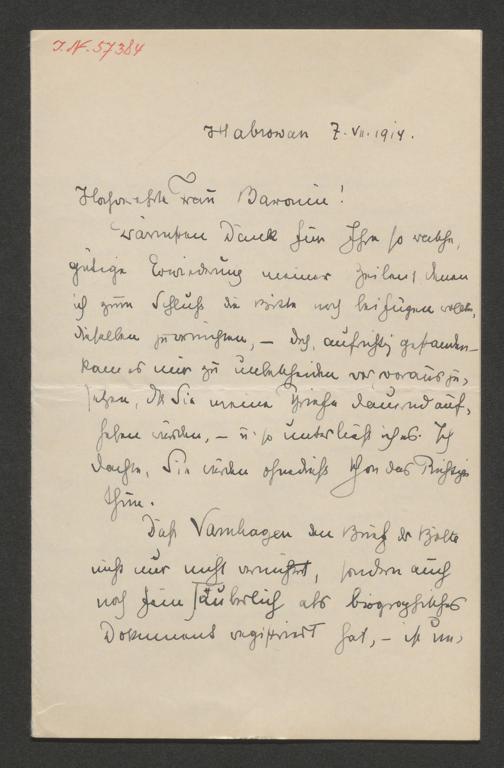 I.N. 57384
Habrowan 7. VII. 1914.
Hochverehrte Frau Baronin!
Wärmsten Dank für Ihre so rasche,
gütige Erwiederung meiner Zeilen, denen
ich zum Schluß die Bitte noch beifügen wollte,
dieselben zu vernichten, – doch, aufrichtig gestanden –
kam es mir zu unbescheiden vor, vorauszu-
setzen, daß Sie meine Briefe dauernd auf-
heben würden, – u. so unterließ ich es. Ich
dachte, Sie würden ohnedieß schon das Richtige
thun.
Daß Varnhagen den Brief der Bölte
nicht nur nicht vernichtet, sondern auch
noch fein säuberlich als biographisches
Dokument registriert hat, – ist un-